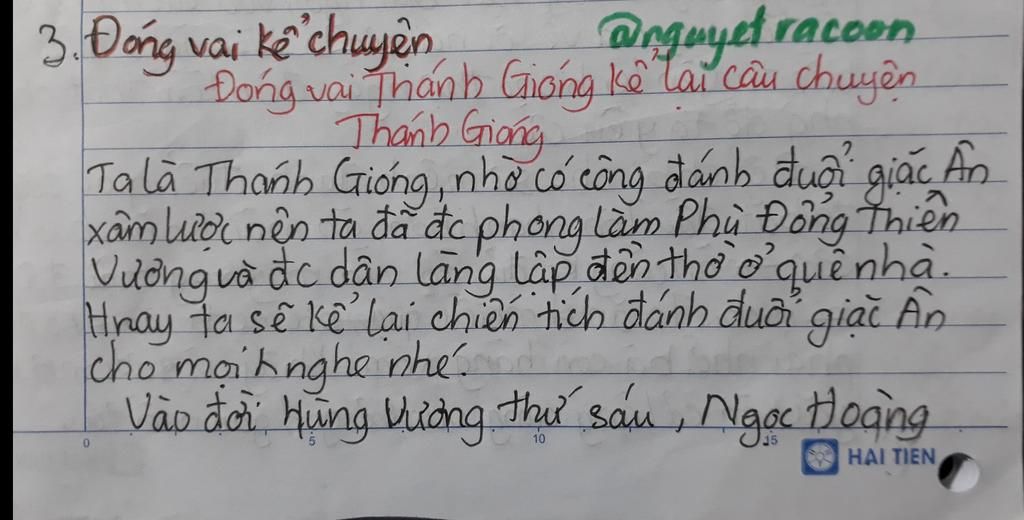 3. Đóng vai kể chuyện @nguyetracoon
Đóng vai Thánh Gióng kể lại câu chuyện
Thánh Gióng
Ta là Thánh Gióng, nhờ có công đánh đuổi giặc Ân
xâm lược nên ta đã đc phong làm Phù Đổng Thiên
Vương và đc dân làng lập đền thờ ở quê nhà.
Hnay ta sẽ kể lại chiến tích đánh đuổi giặc Ân
cho mọi k nghe nhé.
Vào đời Hùng Vương thứ sáu, Ngọc Hoàng
0 5 10 15
HAI TIEN